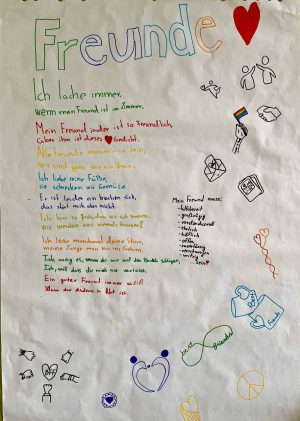 Freunde
Ich lache immer,
wenn mein Freund ist im Zimmer.
Mein Freund ist so freundlich,
aber ihm ist dieses Gedicht.
Alle Freunde müssen fein sein,
wie sind ganz
Ich liebe meine Füße,
sie schmecken wie Gemüse.
Er ist leider ein bisschen dick,
das stört mich aber nicht.
Ich bin so
wir werden uns niemals trennen!
Ich lecke manchmal deine Stirn,
meine Zunge kam bis ins Gehirn.
Ich mag es, wenn du mir auf den Rücken schlägst,
Ich will dass du mich nie verlässt.
Ein guter Freund immer
Wenn der Andere in Not ist.
Mein Freund muss:
- hilfsbereit
- großzügig
- verständnisvoll
- ehrlich
- höflich
- offen
- zuverlässig
- witzig
sein
BFF
best
friends